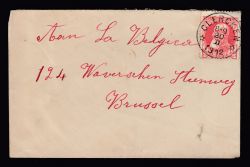 Aan La Belgica
124 Waverschen Steenweg
Brussel
CLERCKEN
1912